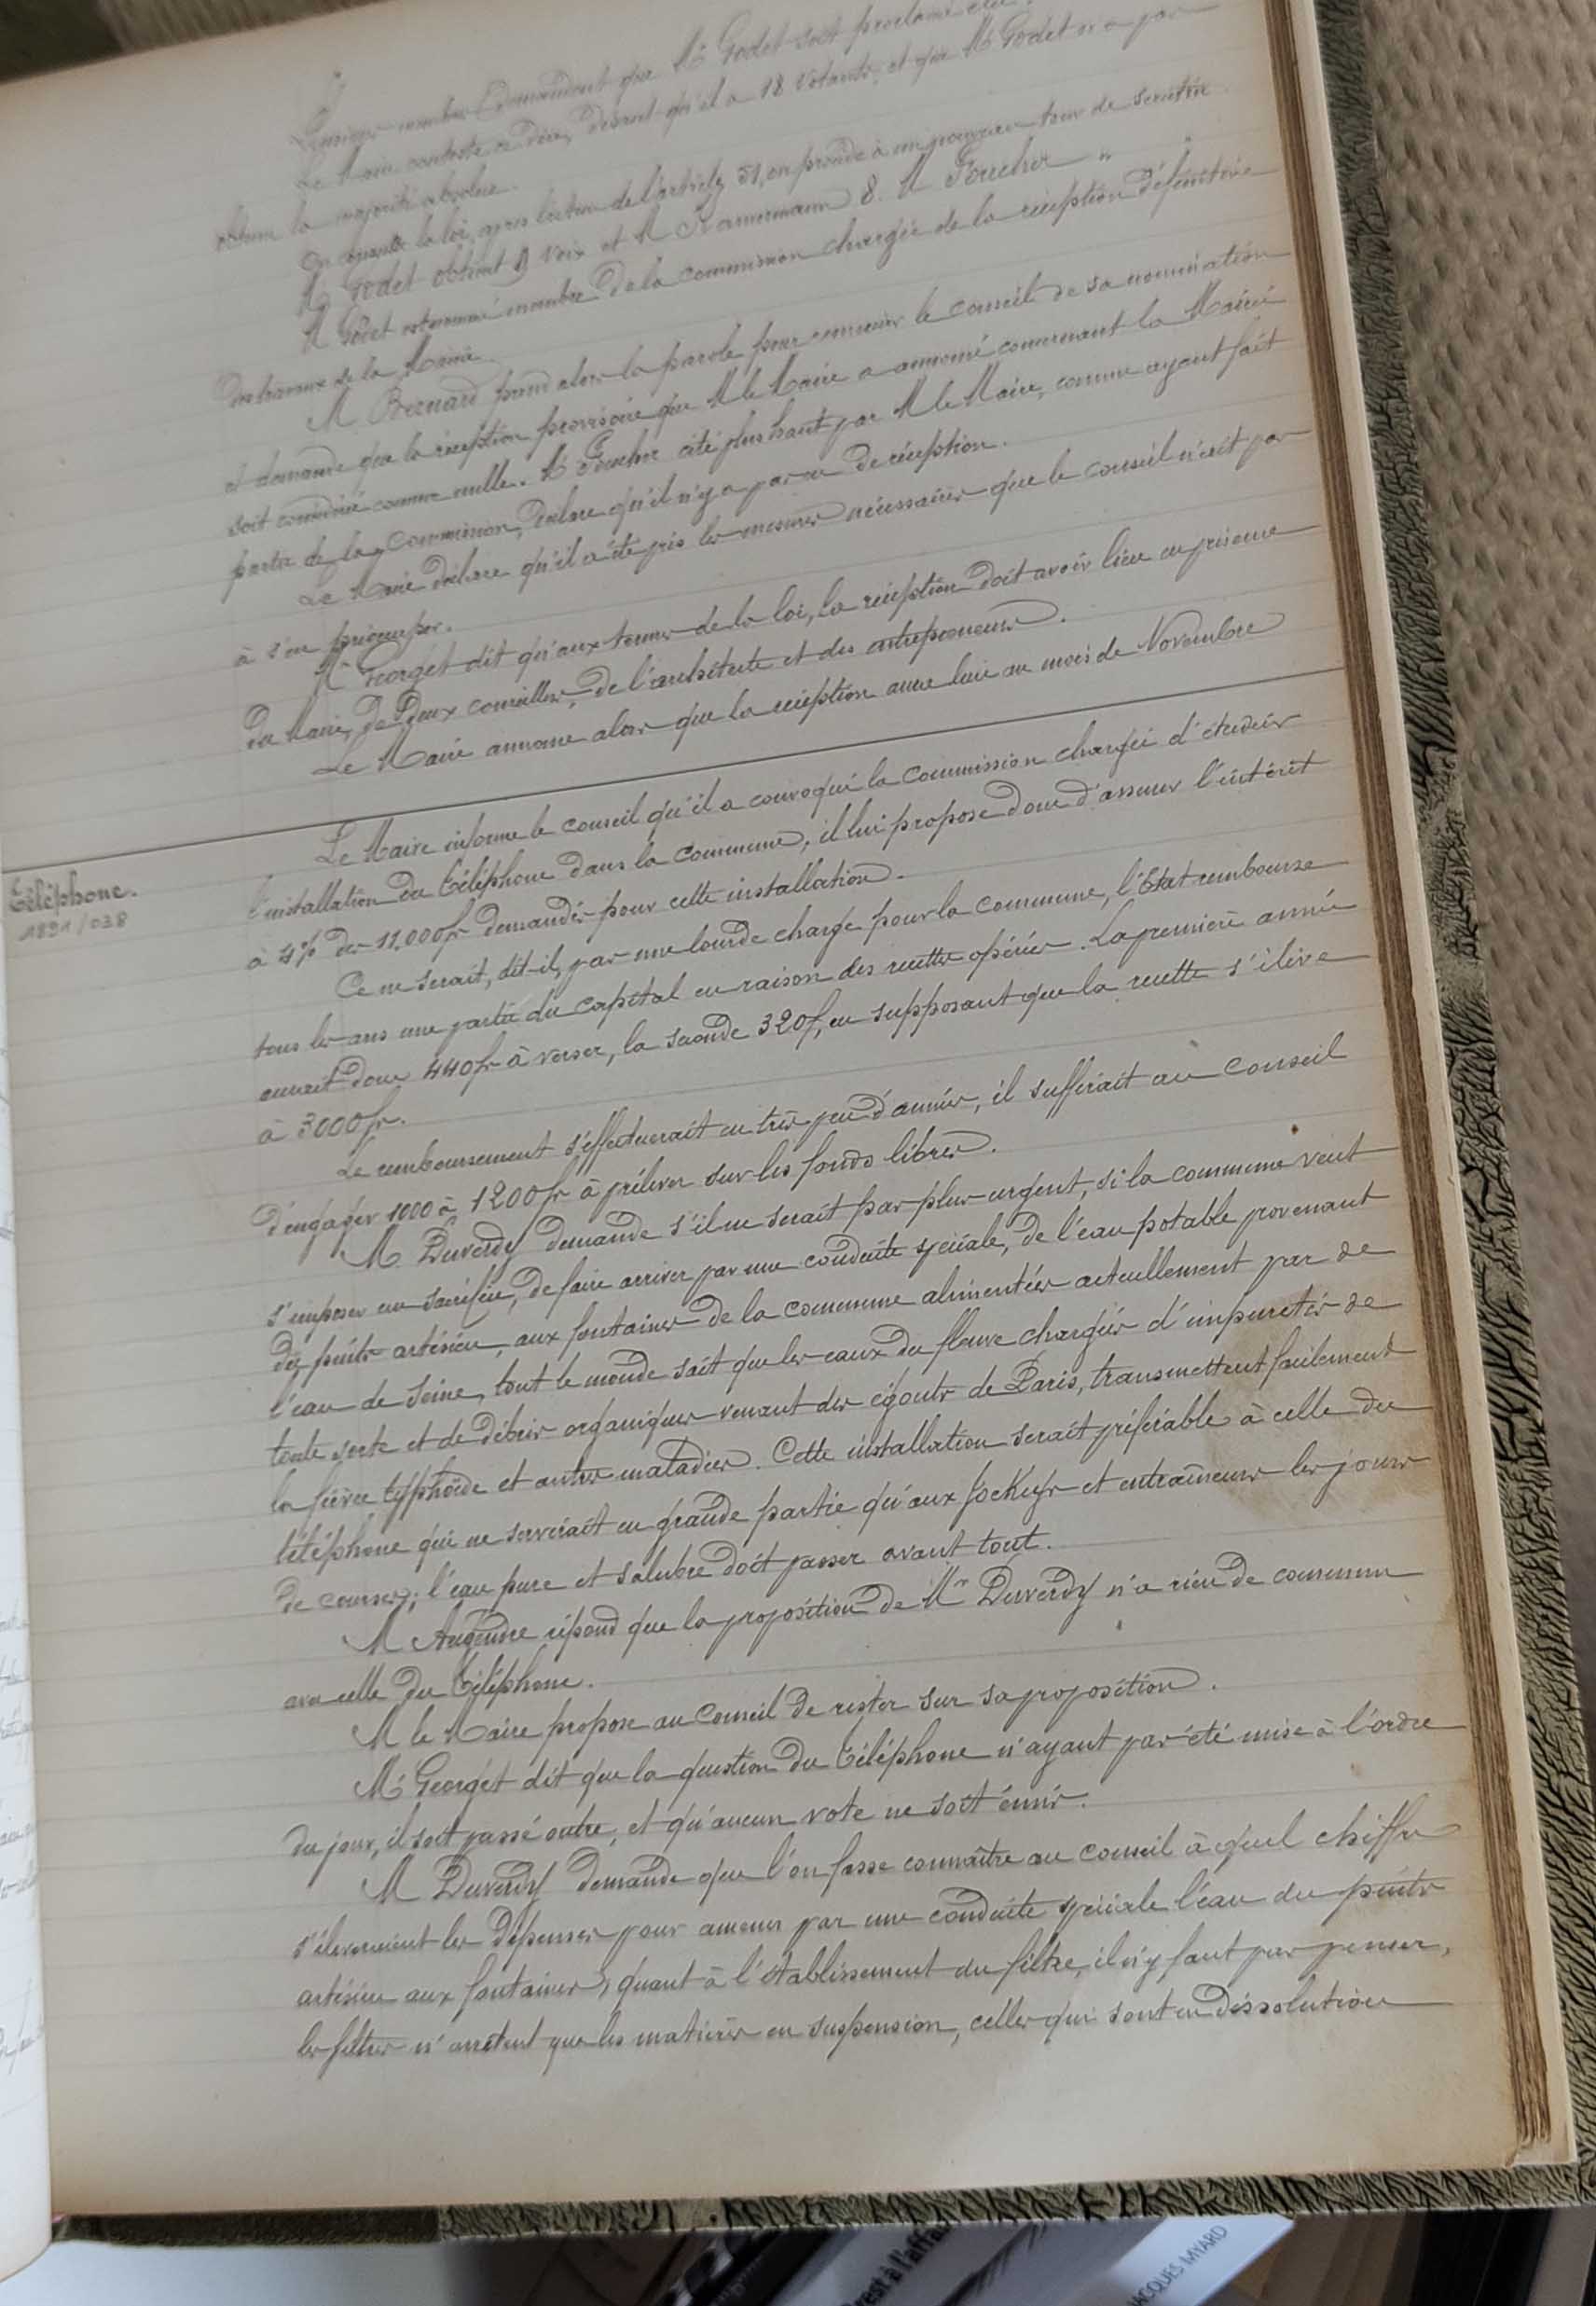 Plusieurs membres demandent que Mr Godet soit proclamé élu.
Le Maire conteste ce dire, disant qu'il a 18 votants, et que Mr Godet n'a pas
obtenu la majorité absolue.
On consulte la loi, après lecture de l'article 51, on procède à un nouveau tour de scrutin
Mr Godet obtient 9 voix et M Kammermann 8. M Foucher " "
M Godet est nommé membre de la commission chargée de la réception définitive
des travaux de la Mairie.
M Besnard prend alors la parole pour remercier le conseil de sa nomination
et demande que la réception provisoire que M le Maire a annoncé concernant la Mairie
soit considérée comme nulle. Mr Foucher cité plus haut par M le Maire, comme ayant fait
partie de la Commission, déclare qu'il n'y a pas eu de réception.
Le Maire déclare qu'il a été pris les mesures nécessaires que le conseil n'ait pas
à s'en préoccuper.
Mr Georget dit qu'aux termes de la loi, la réception doit avoir lieu en présence
du Maire, de Deux conseillers, de l'architecte et des entrepreneurs.
Le Maire annonce alors que la réception aura lieu au mois de Novembre
Téléphone.
1891/038
Le Maire informe le conseil qu'il a convoqué la Commission chargée d'étudier
l'installation du Téléphone dans la commune, il lui propose donc d'assurer l'intérêt
à 4% des 11.000fr demandés pour cette installation.
Ce ne serait, dit-il, pas une lourde charge pour la commune, l'Etat rembourse
tous les ans une partie du capital en raison des recettes opérées. La première année
aurait donc 440fr à verser, la seconde 320f, en supposant que la recette s'élève
à 3000fr.
Le remboursement s'effectuerait en très peu d'années, il suffirait au Conseil
d'engager 1000 à 1200fr à prélever sur les fonds libres.
M Duverdy demande s'il ne serait pas plus urgent, si la commune veut
s'imposer un sacrifice, de faire arriver par une conduite spéciale, de l'eau potable provenant
du puits artésien, aux fontaines de la commune alimentées actuellement par de
l'eau de Seine, tout le monde sait que les eaux du fleuve chargées d'impuretés de
toute sorte et de débris organiques venant des égouts de Paris, transmettent facilement
la fièvre typhoïde et autres maladies. Cette installation serait préférable à celle du
téléphone qui ne servirait en grande partie qu'aux Jockeys et entraîneurs les jours
de courses; l'eau pure et salubre doit passer avant tout.
M Augendre répond que la proposition de Mr Duverdy n'a rien de commun
avec celle du Téléphone.
M le Maire propose au Conseil de rester sur sa proposition.
Mr Georget dit que la question du Téléphone n'ayant pas été mise à l'ordre
du jour, il soit passé outre, et qu'aucun vote ne soit émis.
M Duverdy demande que l'on fasse connaître au Conseil à quel chiffre
s'élèveraient les dépenses pour amener par une conduite spéciale l'eau du puits
artésien aux fontaines, quant à l'établissement du filtre, il n'y faut pas penser,
les filtres n'arrêtent que les matières en suspension, celles qui sont en dissolution
rest à l'affi
JACQUES MYARD